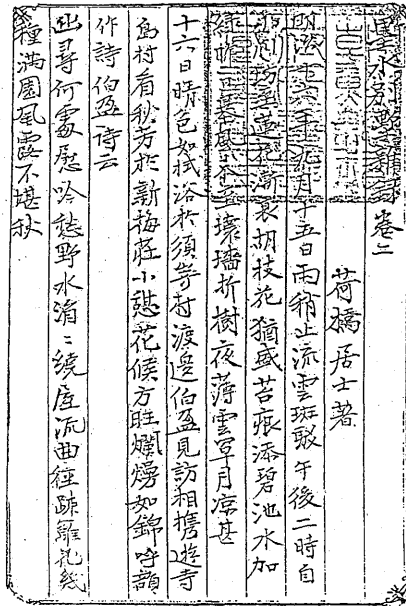 墨水別墅雜録 卷二
荷橋居士著
明治十六年九月十五日雨稍止流雲斑駁午後二時自
蓮花漸衰胡枝花猶盛苔痕添碧池水加
壞墻折樹夜薄雲罩月凉甚
十六日晴色如拭浴於須寺村渡邊伯盈見訪相携遊寺
島村看秋芳於新梅莊小憩花候方旺爛熳如錦呼韻
作詩伯盈詩云
出尋何處慰吟愁野水涓〻繞屋流曲徑疎籬花幾
種滿園風露不堪秋